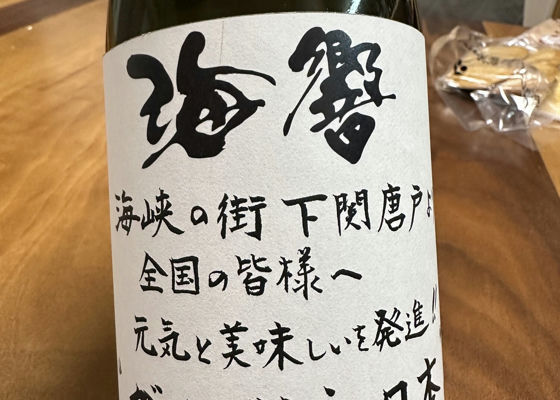 海響
海峡の街 下関唐戸よ
全国の皆様へ
元気と美味しいを発進!!
日本